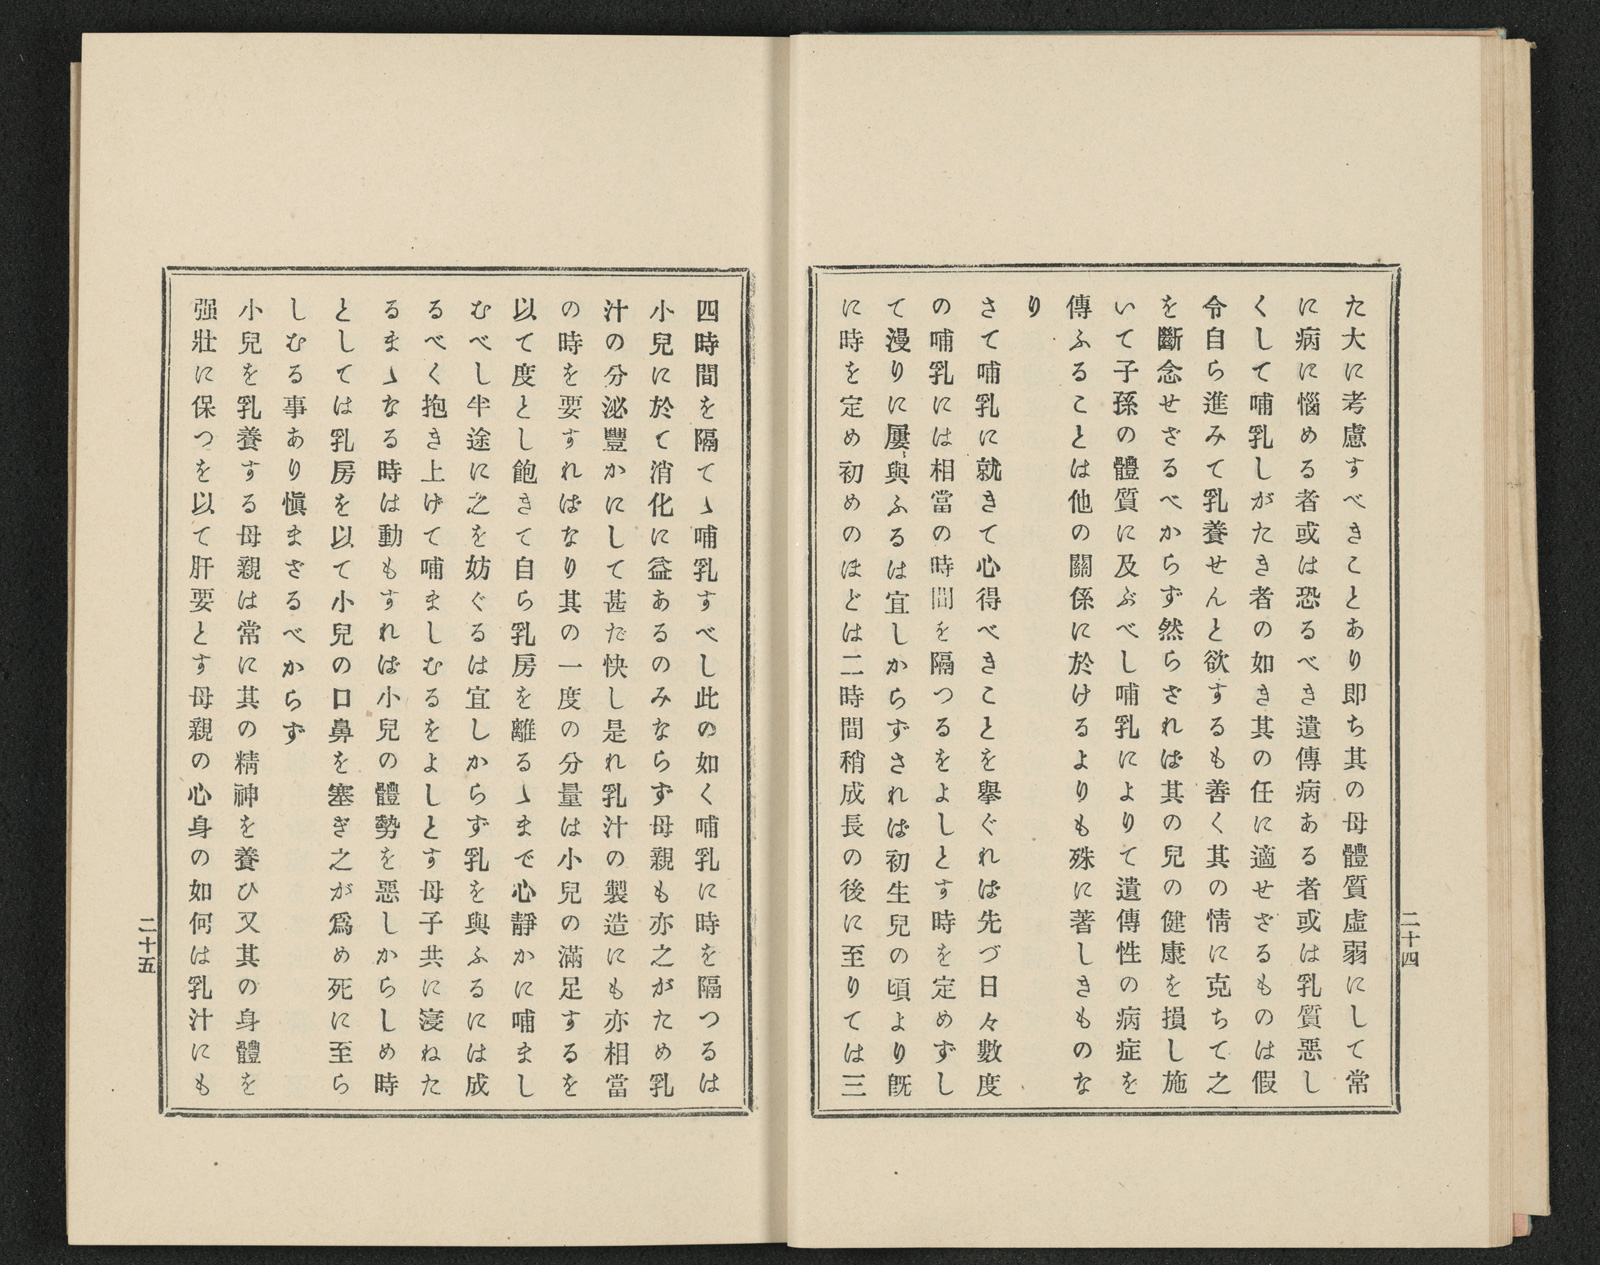 た大に考慮すべきことあり即ち其の母體質虛弱にして常
に病に惱める者或は恐るべき遺傳病ある者或は乳質惡し
くして哺乳しがたき者の如き其の任に適せざるものは假
令自ら進みて乳養せんと欲するも善く其の情に克ちて之
を斷念せざるべからず然らざれば其の兒の健康を損し施
いて子孫の體質に及ぶべし哺乳によりて遺傳性の病症を
傳ふることは他の關係に於けるよりも殊に著しきものな
り
さて哺乳に就きて心得べきことを擧ぐれば先づ日々數度
の哺乳には相當の時間を隔つるをよしとす時を定めずし
て漫りに屢〻與ふるは宜しからずされば初生兒の頃より旣
に時を定め初めのほどは二時間稍成長の後に至りては三
二十四
四時間を隔てゝ哺乳すべし此の如く哺乳に時を隔つるは
小兒に於て消化に益あるのみならず母親も亦之がため乳
汁の分泌豐かにして甚だ快し是れ乳汁の製造にも亦相當
の時を要すればなり其の一度の分量は小兒の滿足するを
以て度とし飽きて自ら乳房を離るゝまで心靜かに哺まし
むべし半途に之を妨ぐるは宜しからず乳を與ふるには成
るべく抱き上げて哺ましむるをよしとす母子共に寖ねた
るまゝなる時は動もすれば小兒の體勢を惡しからしめ時
としては乳房を以て小兒の口鼻を塞ぎ之が爲め死に至ら
しむる事あり愼まざるべからず
小兒を乳養する母親は常に其の精神を養ひ又其の身體を
强壯に保つを以て肝要とす母親の心身の如何は乳汁にも
二十五